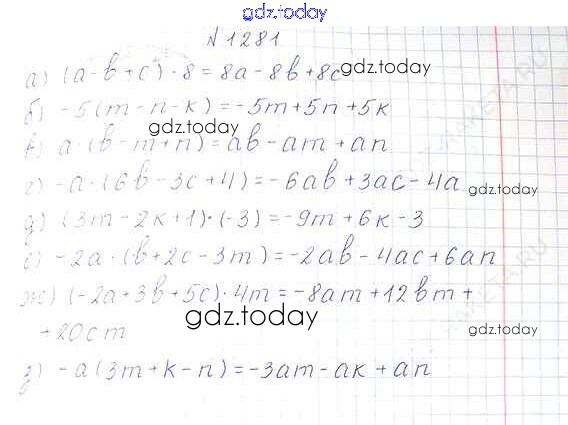 gdz.today
№1281
а) (a-b+c)·8=8a-8b+8c
gdz.today
б) -5(m-n-k)=-5m+5n+5k
gdz.today
в) a·(b-m+n)=ab-am+an
г) -a·(6b-3c+4)=-6ab+3ac-4a
gdz.today
д) (3m-2k+1)·(-3)=-9m+6k-3
е) -2a·(b+2c-3m)=-2ab-4ac+6an
ж) (-2a+3b+5c)·4m=-8am+12bm+
+20cm
gdz.today
gdz.today
з) -a(3m+k-n)=-3am-ak+an